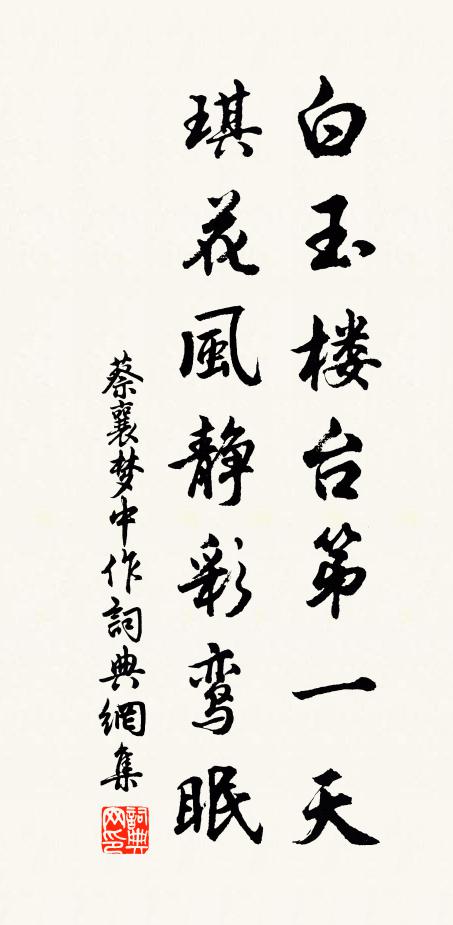 白玉楼台第一天
琪花風静彩鸾眠
蔡襄梦中作詞典網集
詞典網印